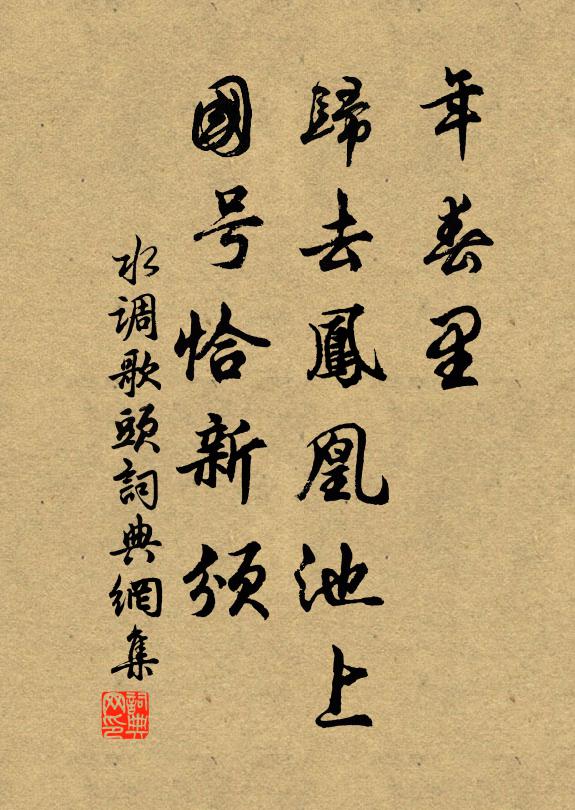 年春里
歸去鳳凰池上
國号恰新頒
水调歌頭詞典網集
詞典
网印